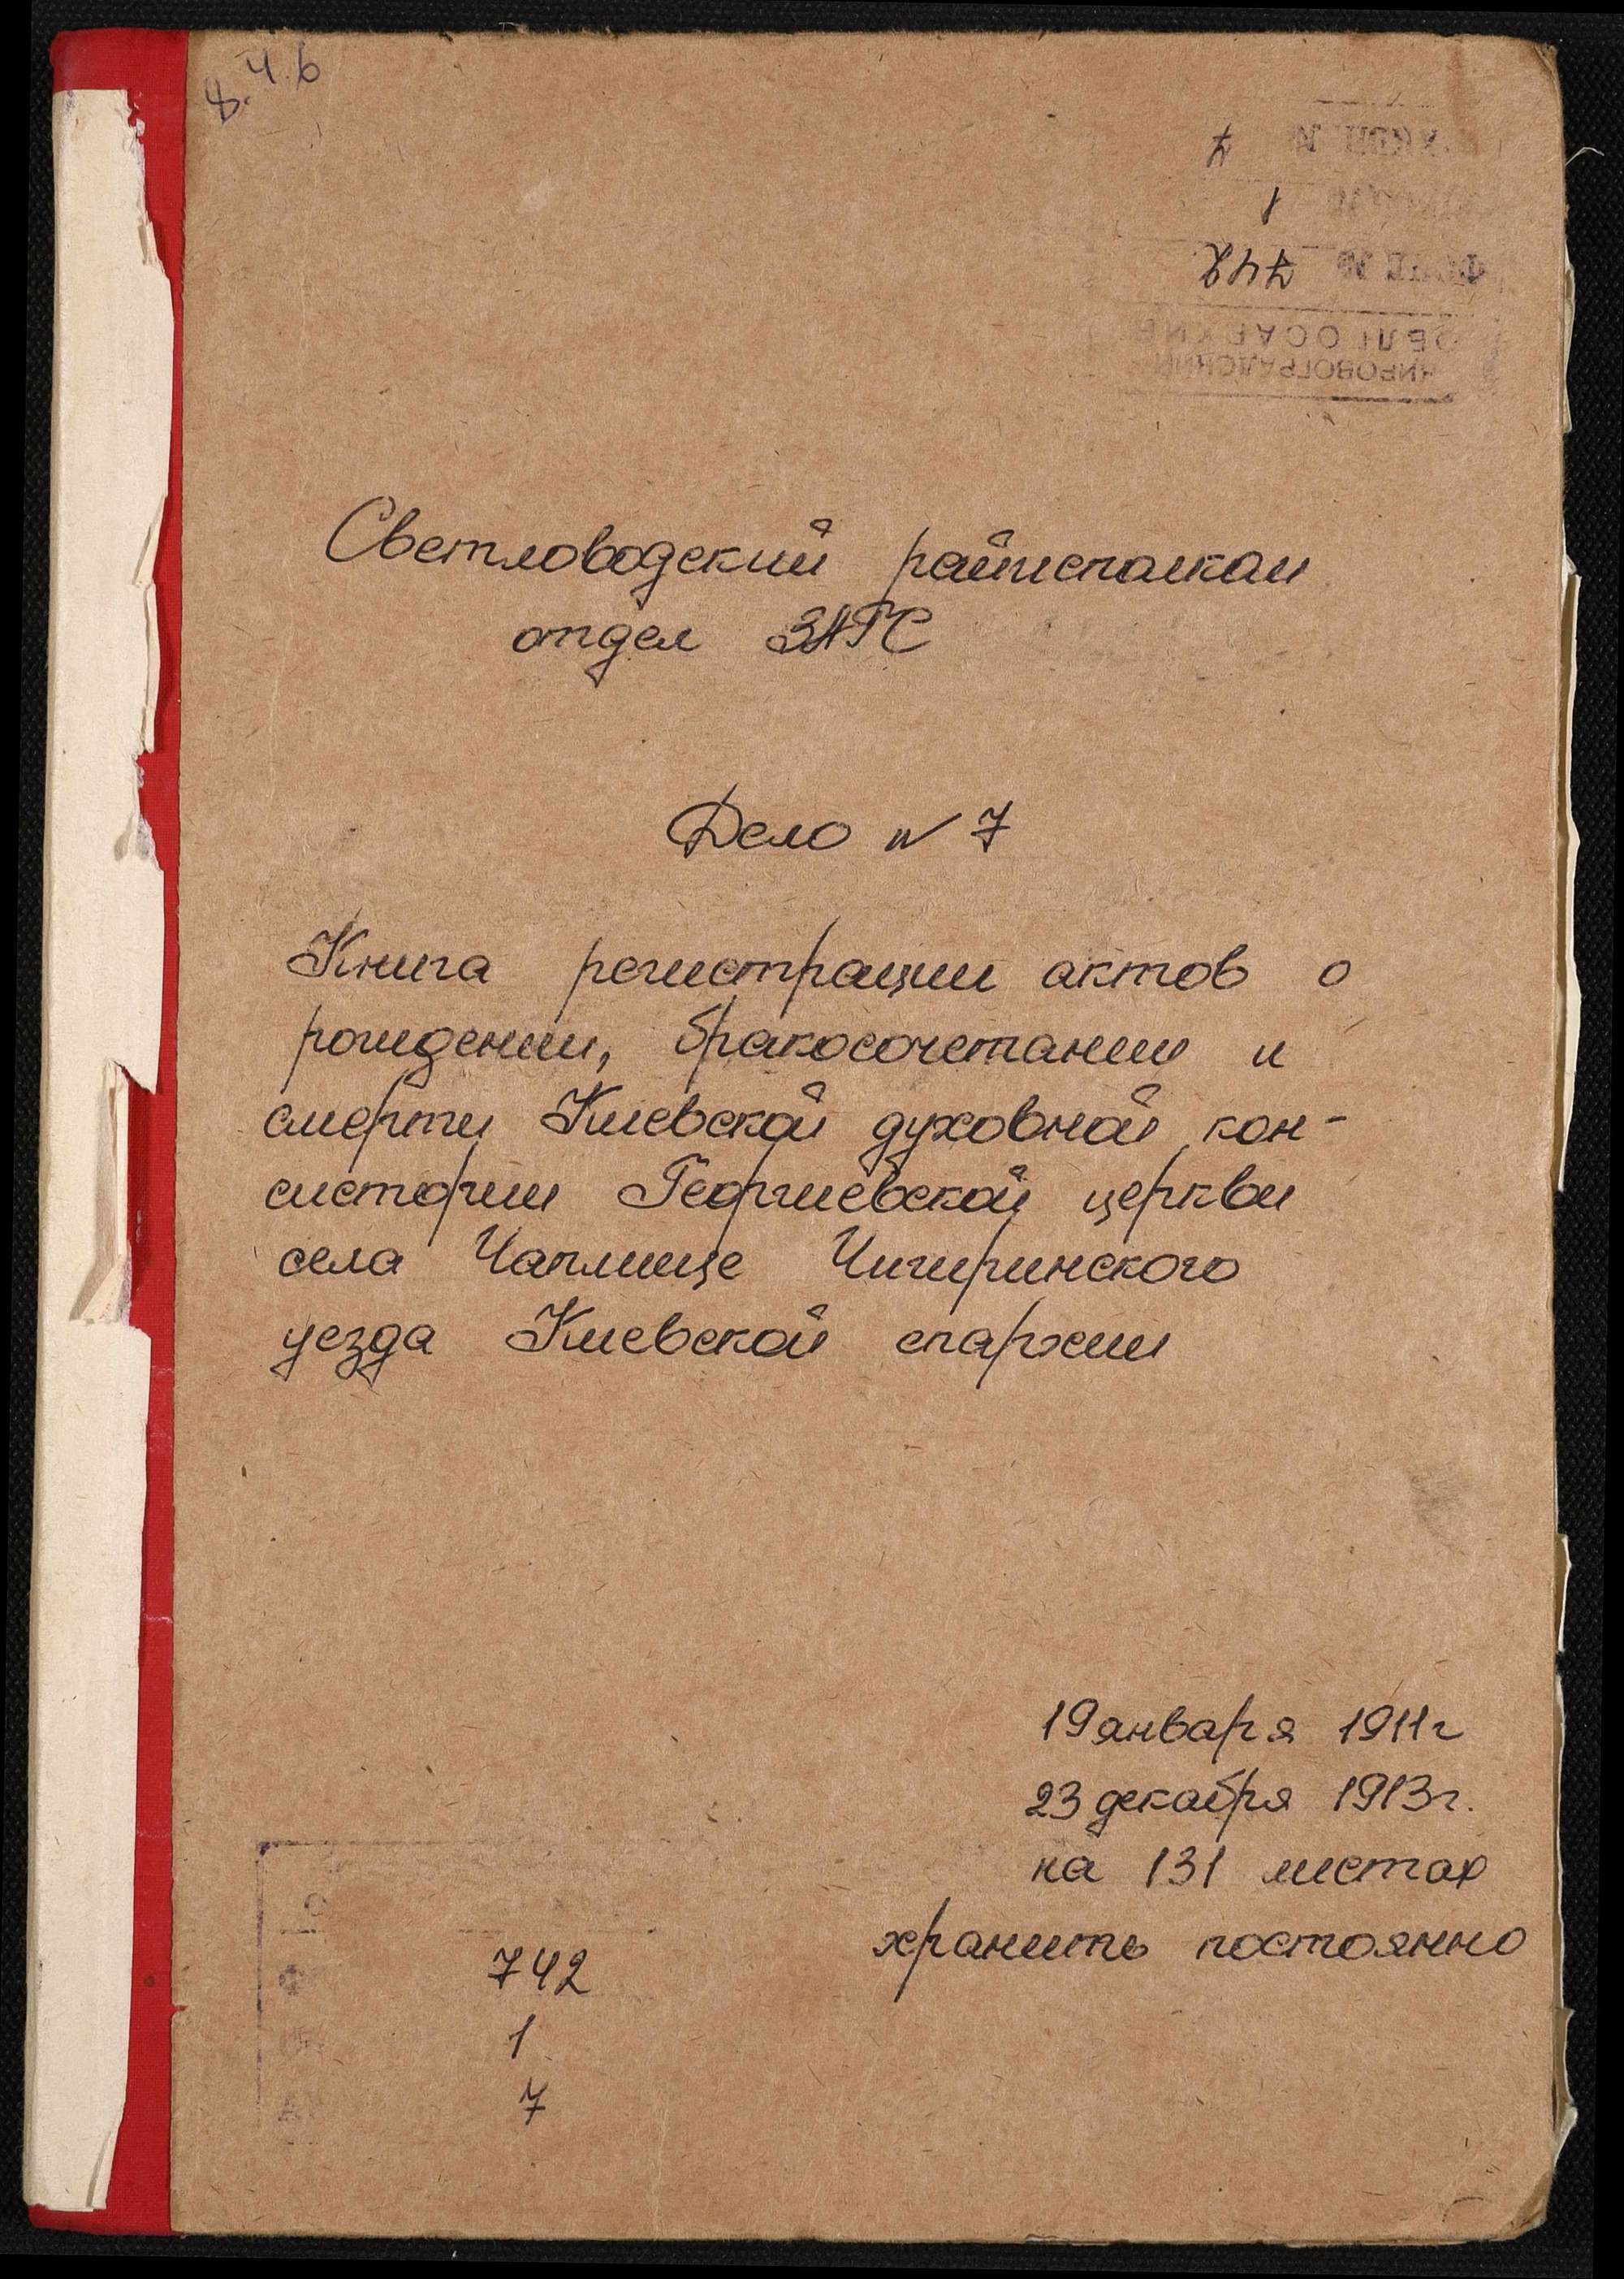 8.4.6
КИРОВОГРАДСКИЙ
ОБЛГОСАРХИВ
ФОНД № 742
1
7
Светловодский райисполком
отдел ЗАГС
Дело № 7
Книга регистрации актов о
рождении, бракосочетании и
смерти Киевской духовной кон-
систории Георгиевской церкви
села Чаплище Чигиринского
уезда Киевской епархии
19 января 1911г
23 декабря 1913г.
на 131 листах
хранить постоянно
742
1
7